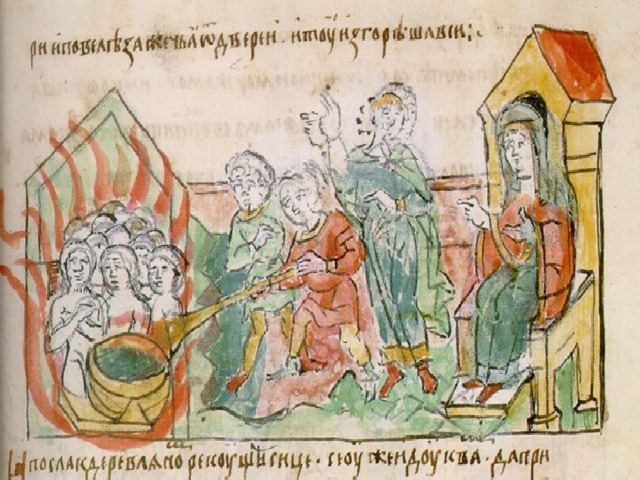 ри и повелѣ зажечь я ѿ двереи · и тоу изгорѣша вси:·
И посла к деревляно рекоущи сице · се оуже идоу к ва · да при